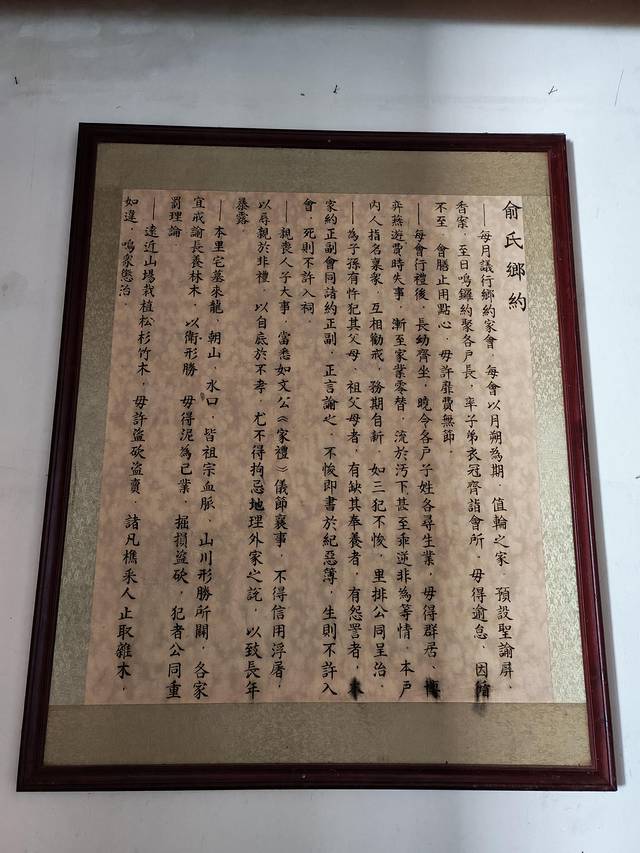 俞氏鄉約
——每月議行鄉約家會．每會以月朔為期．值輪之家 預設聖諭屏、
香案．至日鳴鑼約聚各戶長．率子弟衣冠齊詣會所．毋得逾怠．因循
不至．會膳止用點心．毋許靡費無節．
——每會行禮後．長幼齊坐．曉令各戶子姓各尋生業．毋得群居、博
弈燕遊費時失事．漸至家業零替．流於污下．甚至乖逆非為等情．本戶
內人指名稟眾．互相勸戒．務期自新．如三犯不悛．里排公同呈治．
——為子孫有忤犯其父母、祖父母者．有缺其奉養者．有怨詈者．本
家約正副會同諸約正副．正言諭之．不悛即書於紀惡簿．生則不許入
會．死則不許入祠．
——親喪人子大事．當悉如文公《家禮》儀節襄事．不得信用浮屠．
以辱親於非禮．以自底於不孝．尤不得拘忌地理外家之說．以致長年
暴露．
——本里宅墓來龍、朝山、水口．皆祖宗血脈．山川形勝所關．各家
宜戒諭長養林木．以衛形勝．毋得泥為己業．掘損盜砍．犯者公同重
罰理論．
——遠近山場栽植松杉竹木．毋許盜砍盜賣．諸凡樵采人止取雜木．
如違．鳴眾懲治．